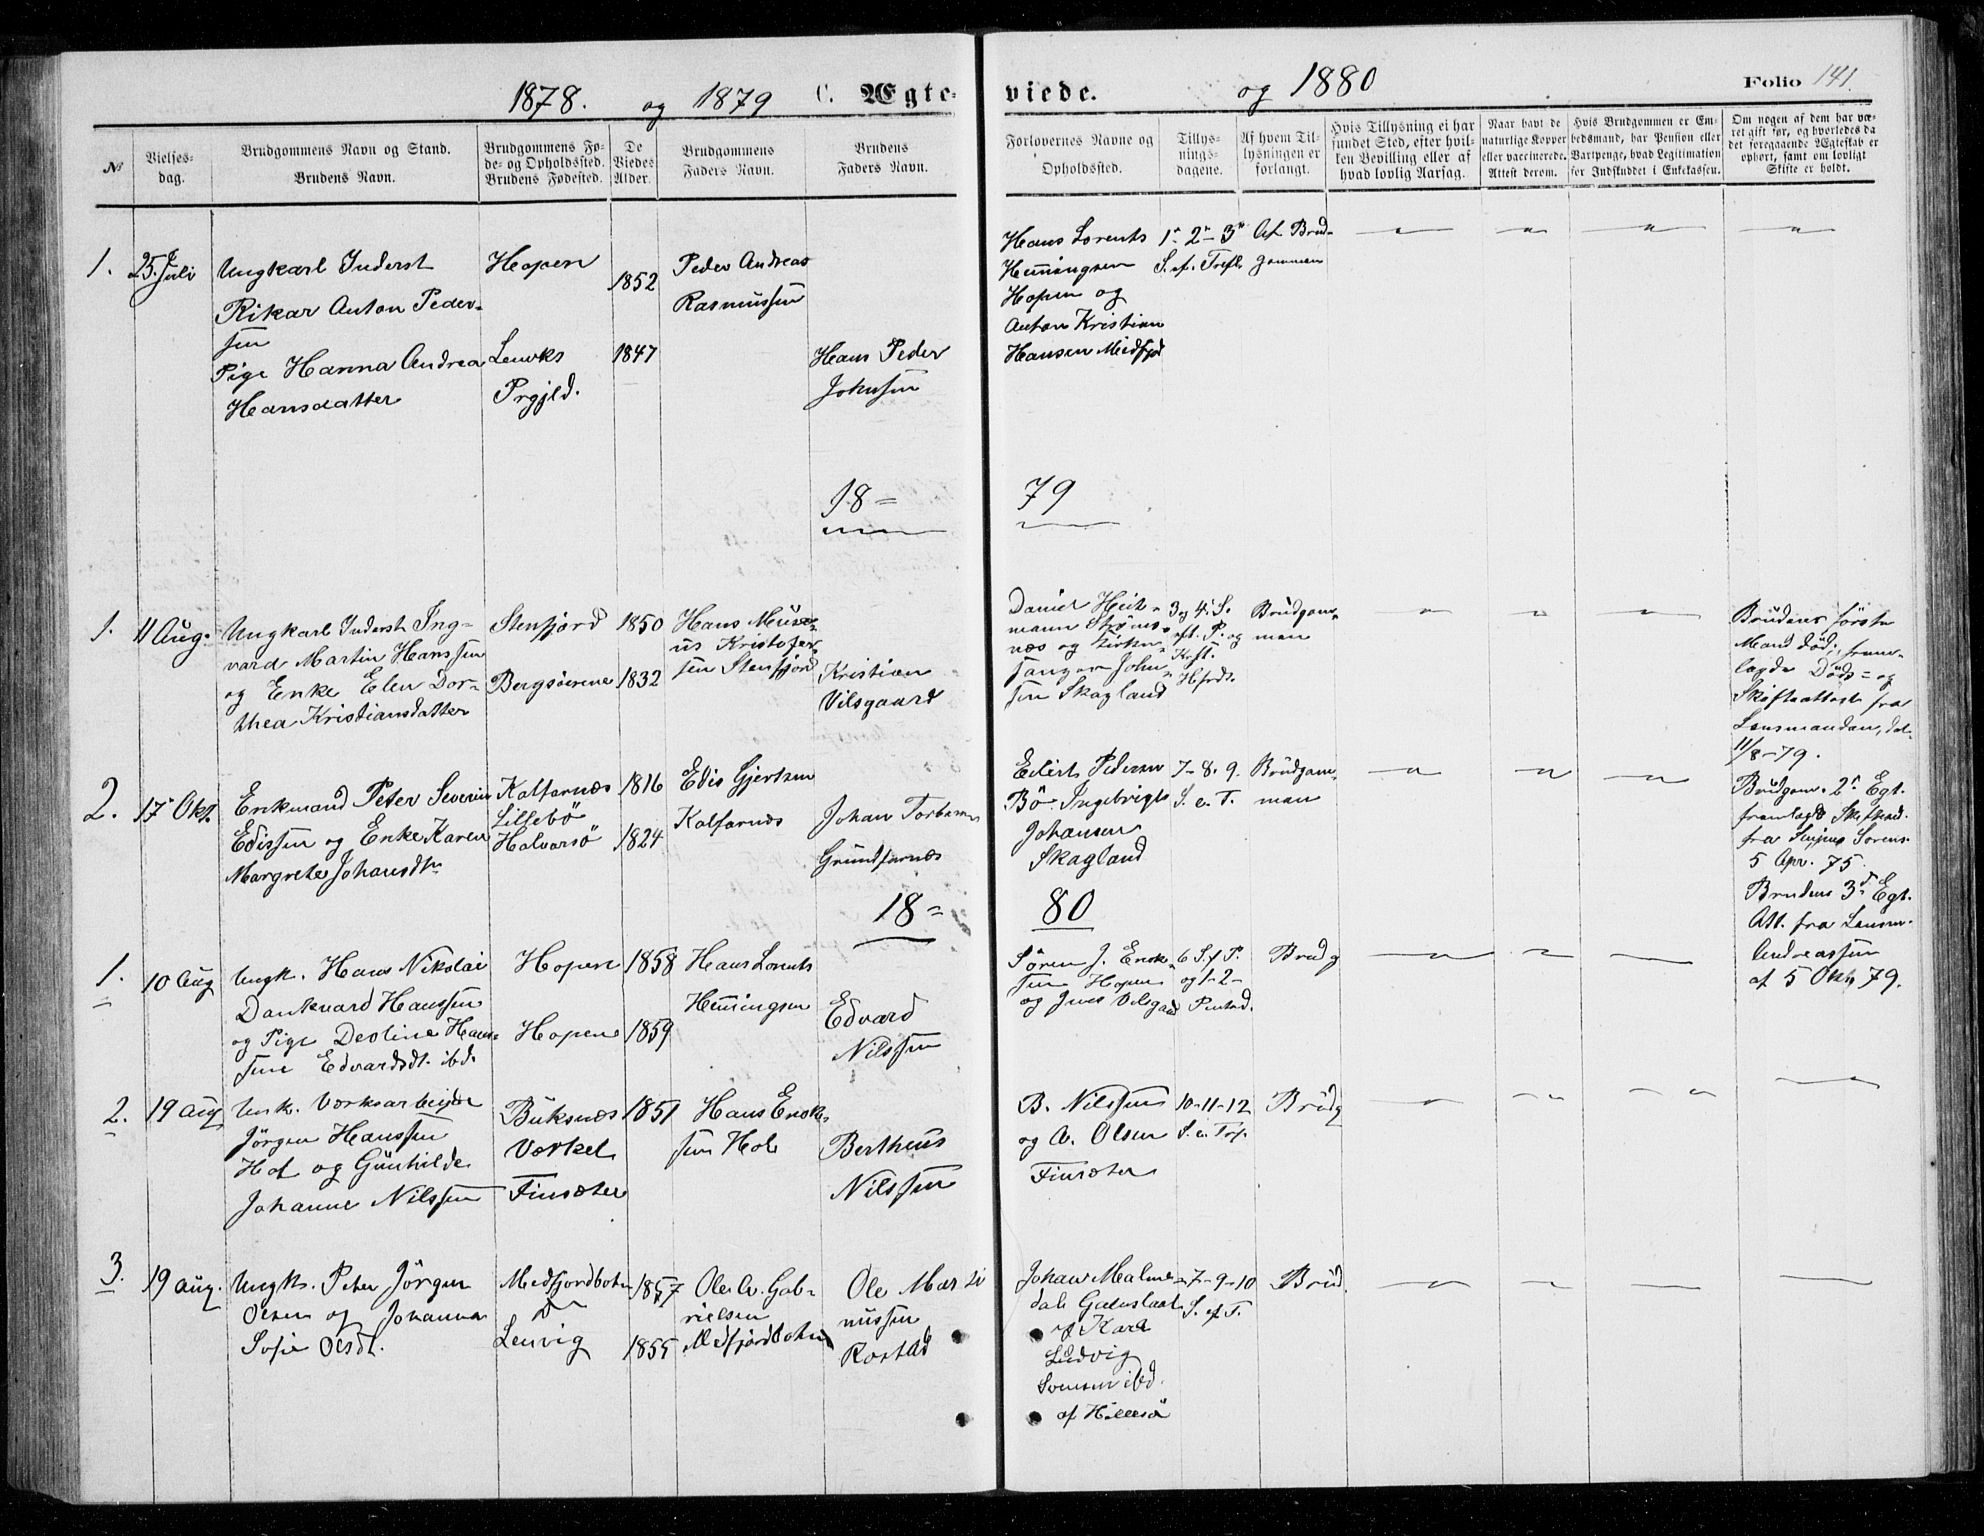 1878. og 1879 C. Ægte-
viede. og 1880 Folio 141.
№
Vielses-
dag.
Brudgommens Navn og Stand.
Brudens Navn.
Brudgommens Fø-
de- og Opholdssted.
Brudens Fødested.
De
Viedes
Alder.
Brudgommens
Faders Navn.
Brudens
Faders Navn.
Forlovernes Navne og
Opholdssted.
Tillys-
nings-
dagene.
Af hvem Til-
lysningen er
forlangt.
Hvis Tillysning ei har
fundet Sted, efter hvil-
ken Bevilling eller af
hvad lovlig Aarsag.
Naar havt de
naturlige Kopper
eller vaccinerede.
Attest derom.
Hvis Brudgommen er Em-
bedsmand, har Pension eller
Vartpenge, hvad Legitimation
for Indskuddet i Enkekassen.
Om nogen af dem har væ-
ret gift før, og hvorledes da
det foregaaende Ægteskab er
ophørt, samt om lovligt
Skifte er holdt.
1.
25. Juli
Ungkarl Inderst
Rikar Anton Peder-
sen
Pige Hanna Andrea
Hansdatter
Hopen
Lenviks
Prgjld.
1852
1847
Peder Andreas
Rasmussen
Hans Peder
Johnsen
Hans Lorents
Hemingsen
Hopen og
Anton Kristian
Hansen Meidfjd
1ste 2- 3de
S. ef. Trefl.
Af Brud-
gommen
18=
79
1.
11 Aug.
Ungkarl Inderst Ing-
vard Martin Hanssen
og Enke Elen Dor-
thea Kristiansdatter
Stenfjord
Bergsøerne
1850
1832
Hans Meuse-
us Kristofer-
sen Stenfjord
Kristian
Vilsgaard
Daniel Heit-
mann
næs og Kirke-
sanger John-
sen Skagland
3 og 4. S.
eft. P. og
Krft.
Brudgom-
man
Brudens første
Mand død; frem-
lagde Døds- og
Skifteattest fra
Lensmanden, dat.
11/8-79.
2.
17 Okt.
Enkemand Peter Severin
Edissen og Enke Karen
Margrete Johansdtr
Kalfarnæs
Lillebø
Halvarsø
1816
1824
Edis Gjertsen
Kalfarnæs
Johan Torbersen
Grundfarnæs
Eilert Pedersen
Bø. Ingebrigt
Johansen
Skagland
7- 8. 9.
S. e. T.
Brudgom-
man
Brudgom. 2t Egt.
fremlagde Skifteatt.
fra Senjens Sorens.
5 Apr. 75.
Brudens 3d Egt.
Att. fra Lensm.
Andreassen
af 5 Okt. 79.
18=
80
1.
10 Aug
Ungk. Hans Nikolai
Dankvard Hanssen
og Pige Desline Han-
sine Edvardsdt. ibd.
Hopen
Hopen
1858
1859
Hans Lorents
Hemingsen
Edvard
Nilssen
Søren J. Enok-
sen Hopen
og Jens Vilsgaard
6 S. f. P.
og 1- 2-
Pintsd.
Brudg
2.
19 Aug
Unk. Værksarbeijder
Jørgen Hanssen
Hof og Gunhilde
Johanne Nilssen
Buksnæs
Værket
Finsæter
1851
Hans Enok-
sen Hol
Bertheus
Nilssen
B. Nilssen
og A. Olsen
Finsæter
10-11-12
S. e. Tref.
Brudg
3.
19 Aug.
Ungk. Peter Jørgen
Olsen og Johanna
Sofie Olsdt.
Medfjordbotn
Lenvig
1857
1855
Ole A. Gab-
rielsen
Medfjordbotn
Ole Mar-
nussen
Rostad
Johan Malme-
dal
af Karl
Ludvig
Svensen ibd.
af Hillesø
7-9-10
S. ef T.
Brud.